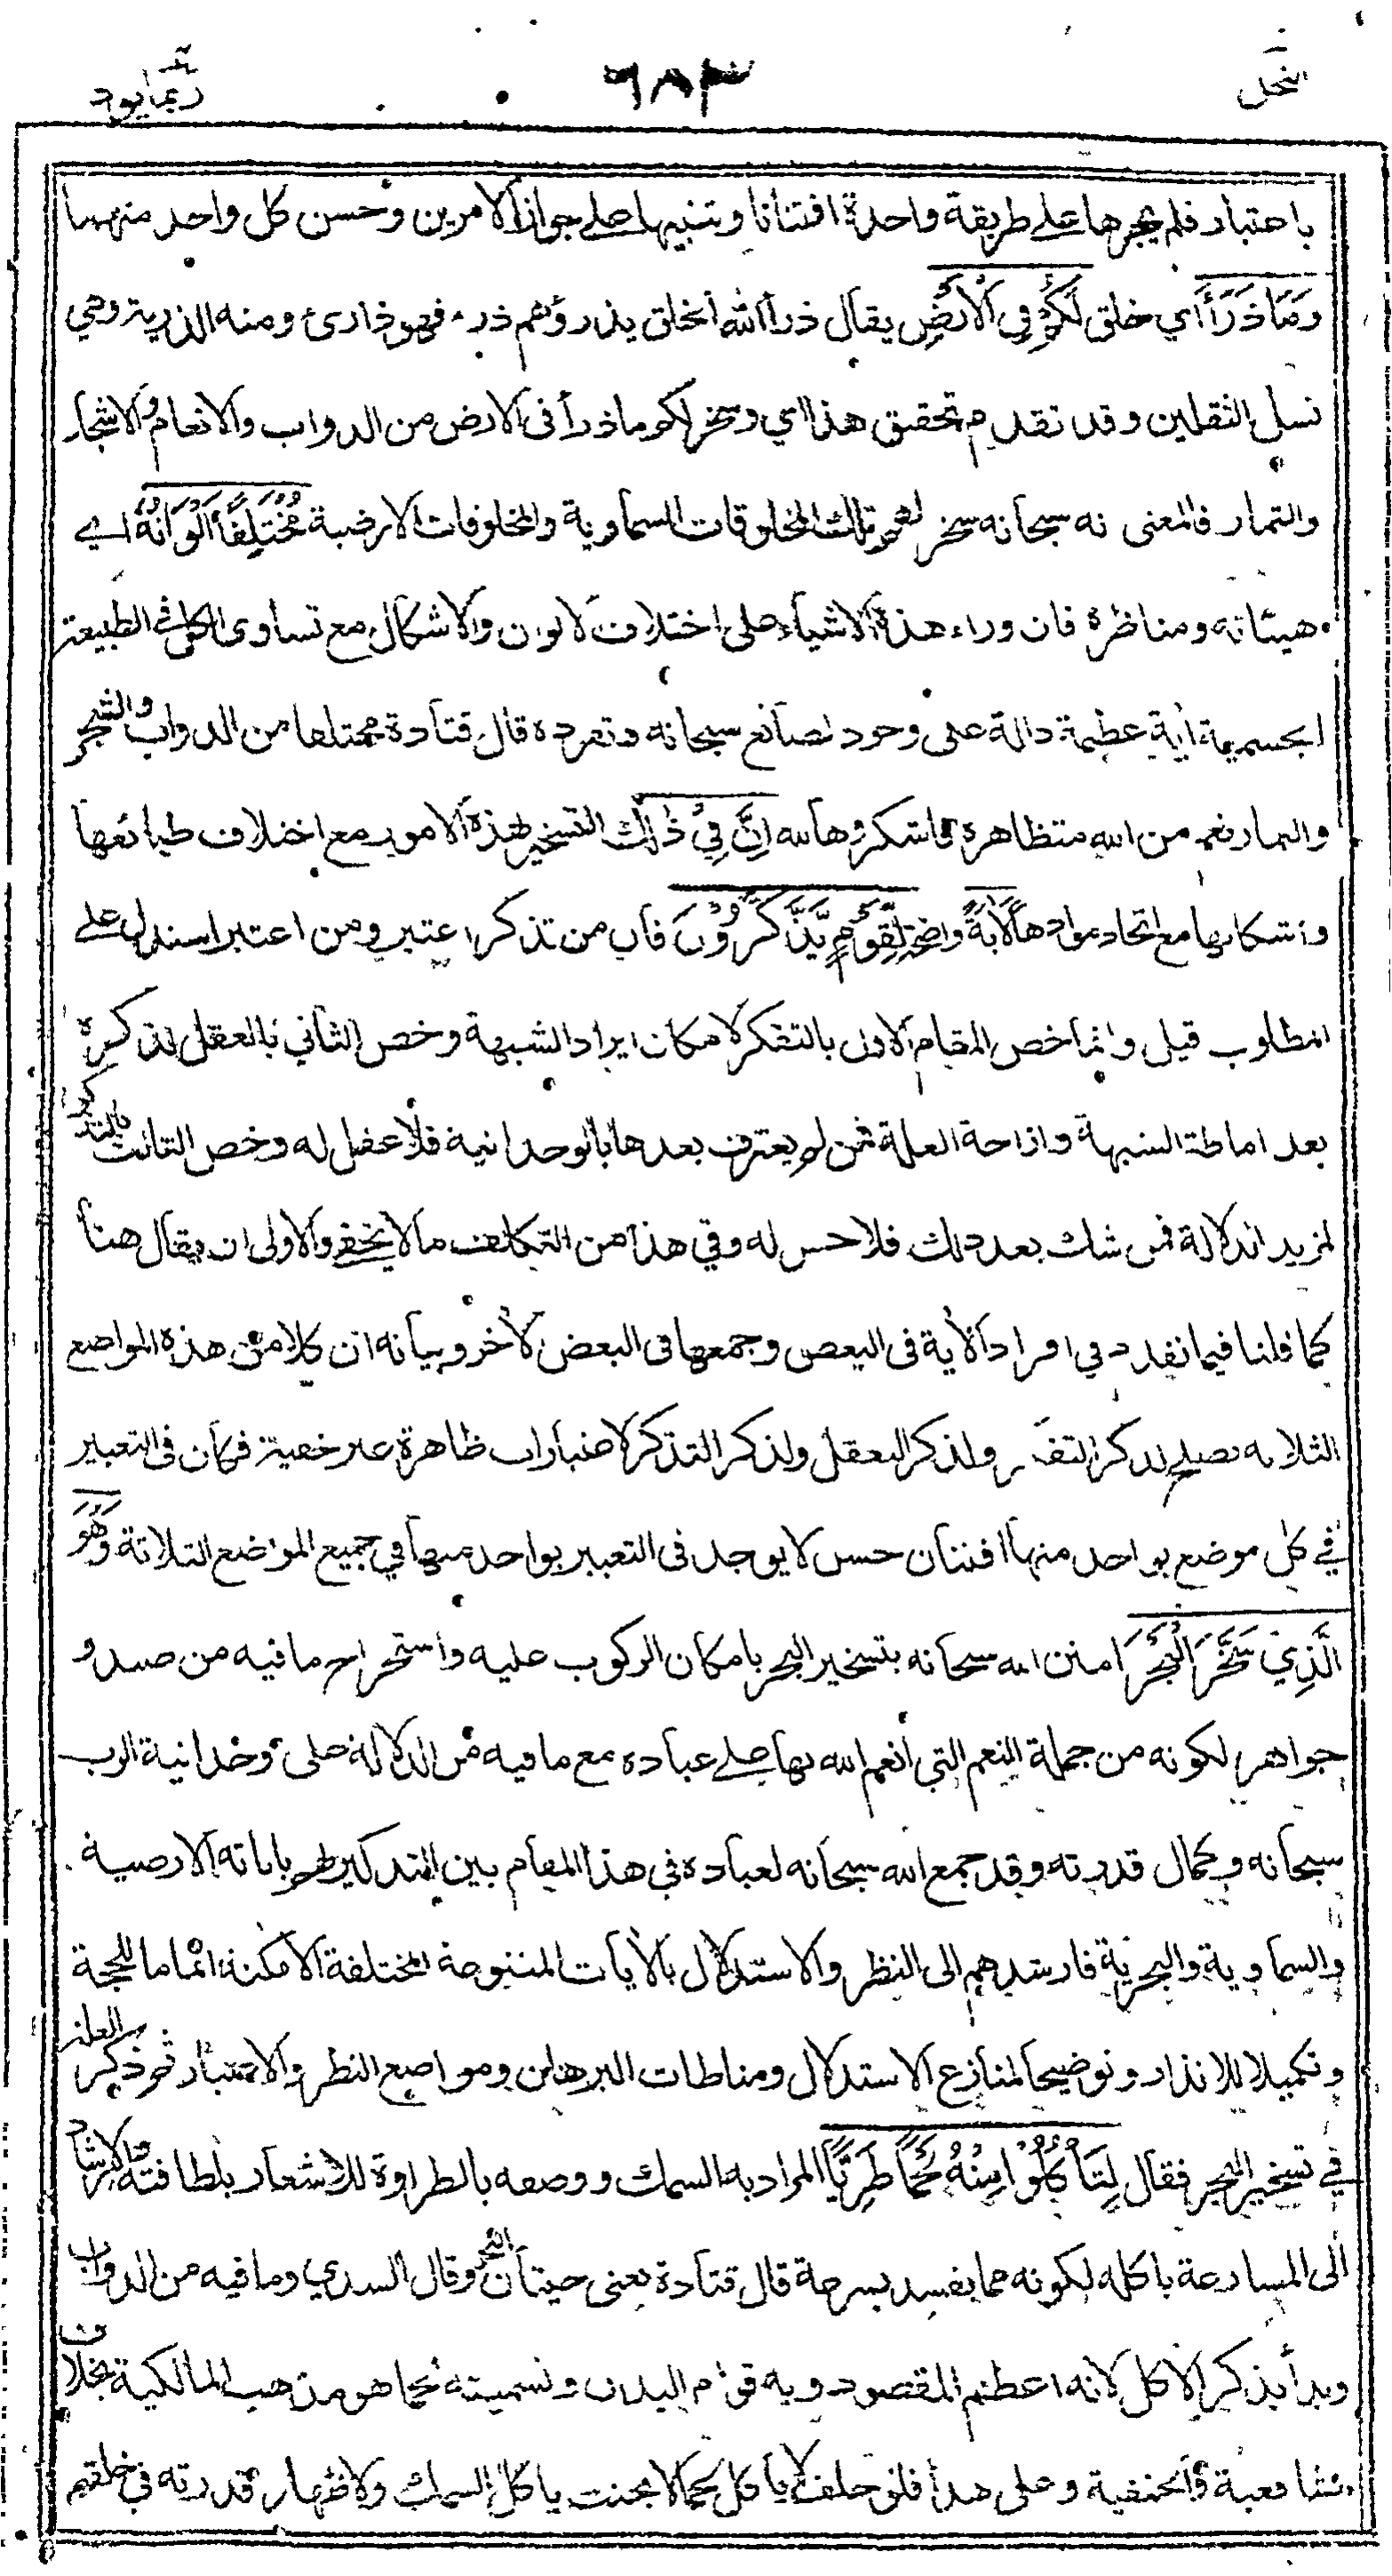 النحل
٦٨٣
ربما يود
باعتبار فلم يجرها على طريقة واحدة افتنانا وتنبيها على جواز الامرين وحسن كل واحد منهما
وَمَا ذَرَأَ اي خلق لَكُمْ فِي الْأَرْضِ يقال ذرأ الله الخلق يذرؤهم ذرء فهو ذارئ ومنه الذرية وهي
نسل الثقلين وقد تقدم تحقيق هذا اي وسخر لكم ما ذرأ في الارض من الدواب والانعام والاشجار
والثمار فالمعنى نه سبحانه سخر لهم تلك المخلوقات السماوية والمخلوقات الارضية مُخْتَلِفًا أَلْوَانُهُ اي
هيئاته ومناظره فان وراء هذه الاشياء على اختلاف لالوان والاشكال مع تساوي الكل في الطبيعة
الجسمية آية عظيمة دالة على وجود لصانع سبحانه وتفرده قال قتادة مختلفا من الدواب والشجر
والثمار نعم من الله متظاهرة فاشكروها لله إِنَّ فِي ذَلِكَ التسخير لهذه الامور مع اختلاف طبائعها
واشكالها مع اتحاد موادها لَآيَةً واضحة لِّقَوْمٍ يَذَّكَّرُوْنَ فان من تذكر اعتبر ومن اعتبر استدل على
المطلوب قيل وانما خص المقام الاول بالتفكر لامكان ايراد الشبهة وخص الثاني بالعقل لذكره
بعد اماطة الشبهة وازاحة العلة فمن لم يعترف بعدها بالوحدانية فلا عقل له وخص الثالث بالتذكر
لمزيد الدلالة فمن شك بعد ذلك فلا حس له وفي هذا من التكلف ما لا يخفى والاولى ان يقال هنا
كما قلنا فيما تقدم في افراد الآية في البعض وجمعها في البعض لآخر وبيانه ان كلا من هذه المواضع
الثلاثة يصلح لذكر التفكر ولذكر التعقل ولذكر التذكر لاعتبارات ظاهرة غير خفية فكان في التعبير
في كل موضع بواحد منها افتنان حسن لا يوجد في التعبير بواحد منها في جميع المواضع الثلاثة وَهُوَ
الَّذِيْ سَخَّرَ الْبَحْرَ امتن الله سبحانه بتسخير البحر بامكان الركوب عليه واستخراج ما فيه من صيد و
جواهر لكونه من جملة النعم التي انعم الله بها على عباده مع ما فيه من الدلالة على وحدانية الرب
سبحانه وكمال قدرته وقد جمع الله سبحانه لعباده في هذا المقام بين التذكير لهم باياته الارضية
والسماوية والبحرية فارشدهم الى النظر والاستدلال بالآيات المتنوعة المختلفة الامكنة اتماما للحجة
وتكميلا للانذار وتوضيحا لمنازع الاستدلال ومناطات البرهان ومواضع النظر والاعتبار ثم ذكر العلة
في تسخير البحر فقال لِتَأْكُلُوْا مِنْهُ لَحْمًا طَرِيًّا المراد به السمك ووصفه بالطراوة للاشعار بلطافته والارشاد
الى المسارعة باكله لكونه مما يفسد بسرعة قال قتادة يعني حيتان البحر وقال السدي وما فيه من الدواب
وبدأ بذكر الاكل لانه اعظم المقصود وبه قوام البدن وتسميته لحما هو مذهب المالكية بخلاف
الشافعية والحنفية وعلى هذا فلو حلف لا يأكل لحما لا يحنث باكل السمك ولاظهار قدرته في خلقه